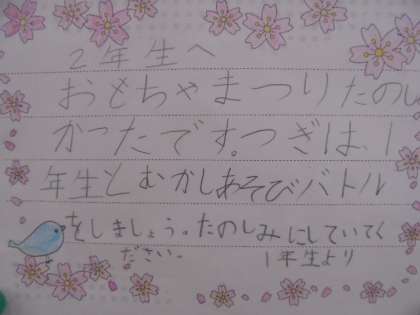 2年生へ
おもちゃまつりたのし
かったです。つぎは、1
年生とむかしあそびバトル
をしましょう。たのしみにしていてく
ださい。
1年生より